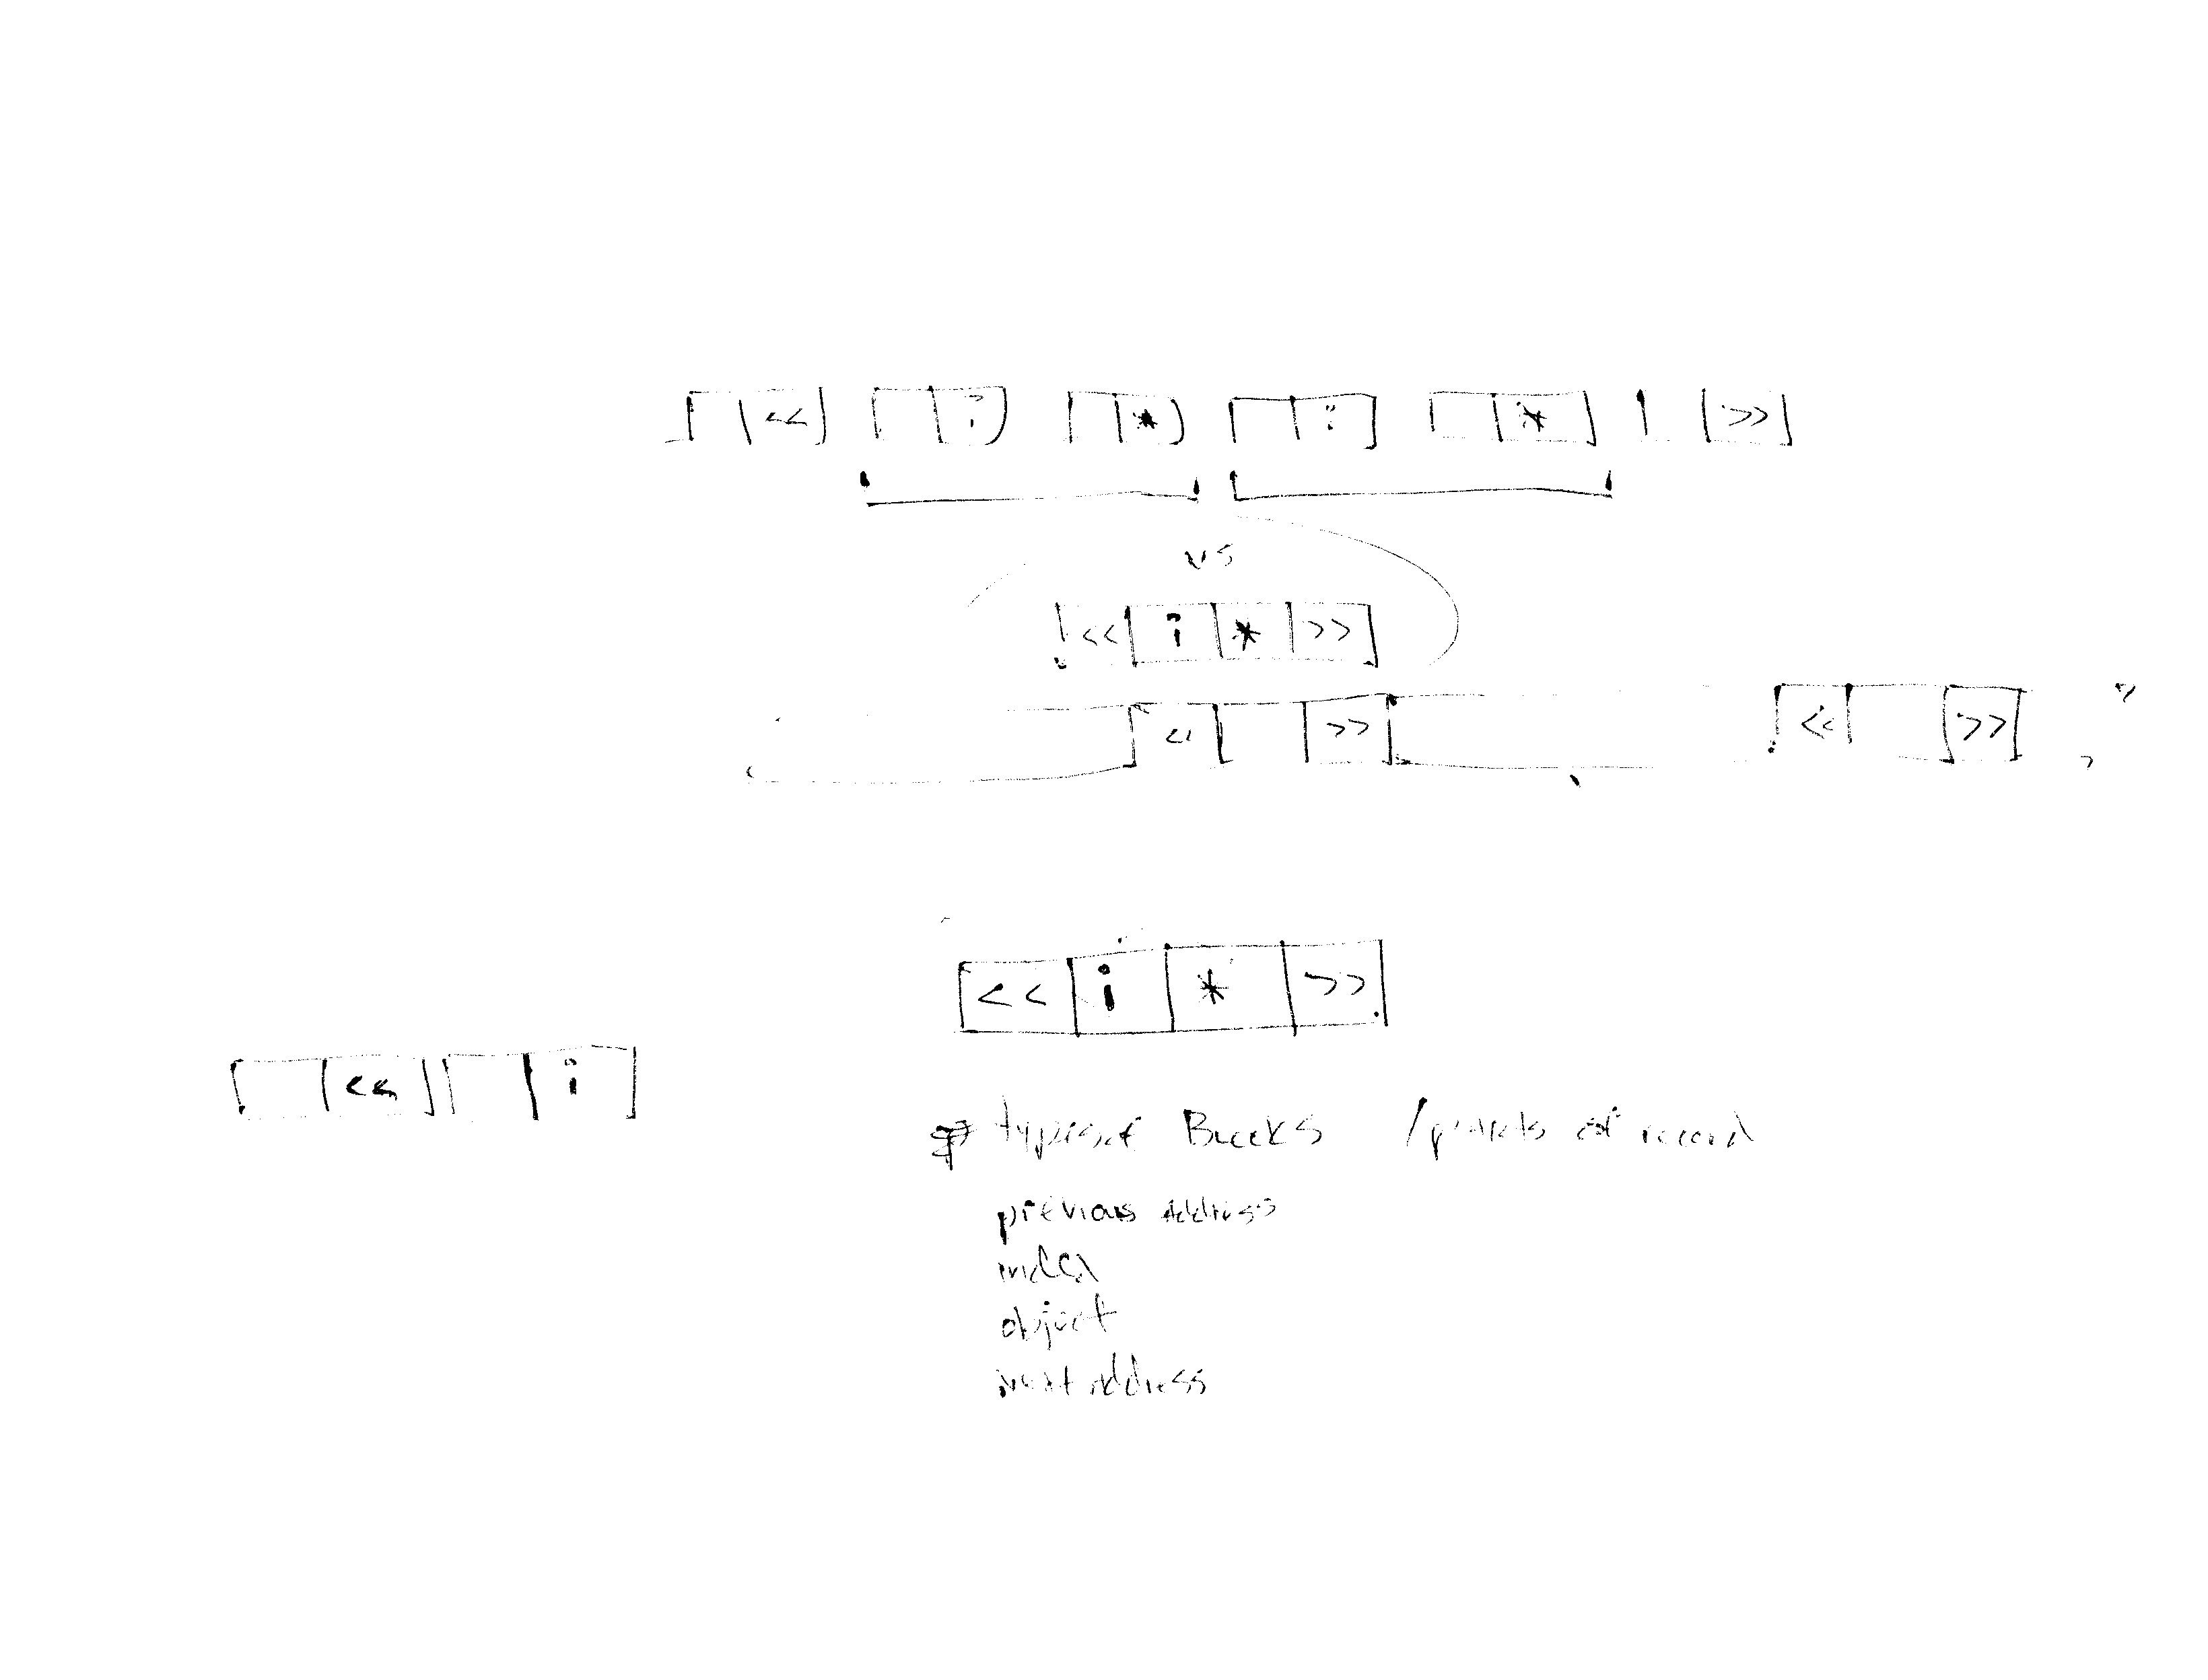 << i * i * >>
vs
<< i * >>
<< >> << >>
<< i * >>
<< i
types of Blocks / of record
previous address
index
object
next address